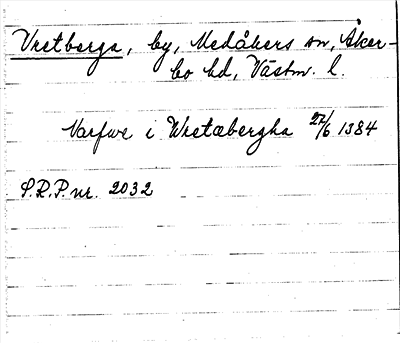 Vretberga, by, Medåkers sn, Åker-
bo hd, Västm. l.
Narfwe i Wretabergha 27/6 1384
S.R.P. nr. 2032